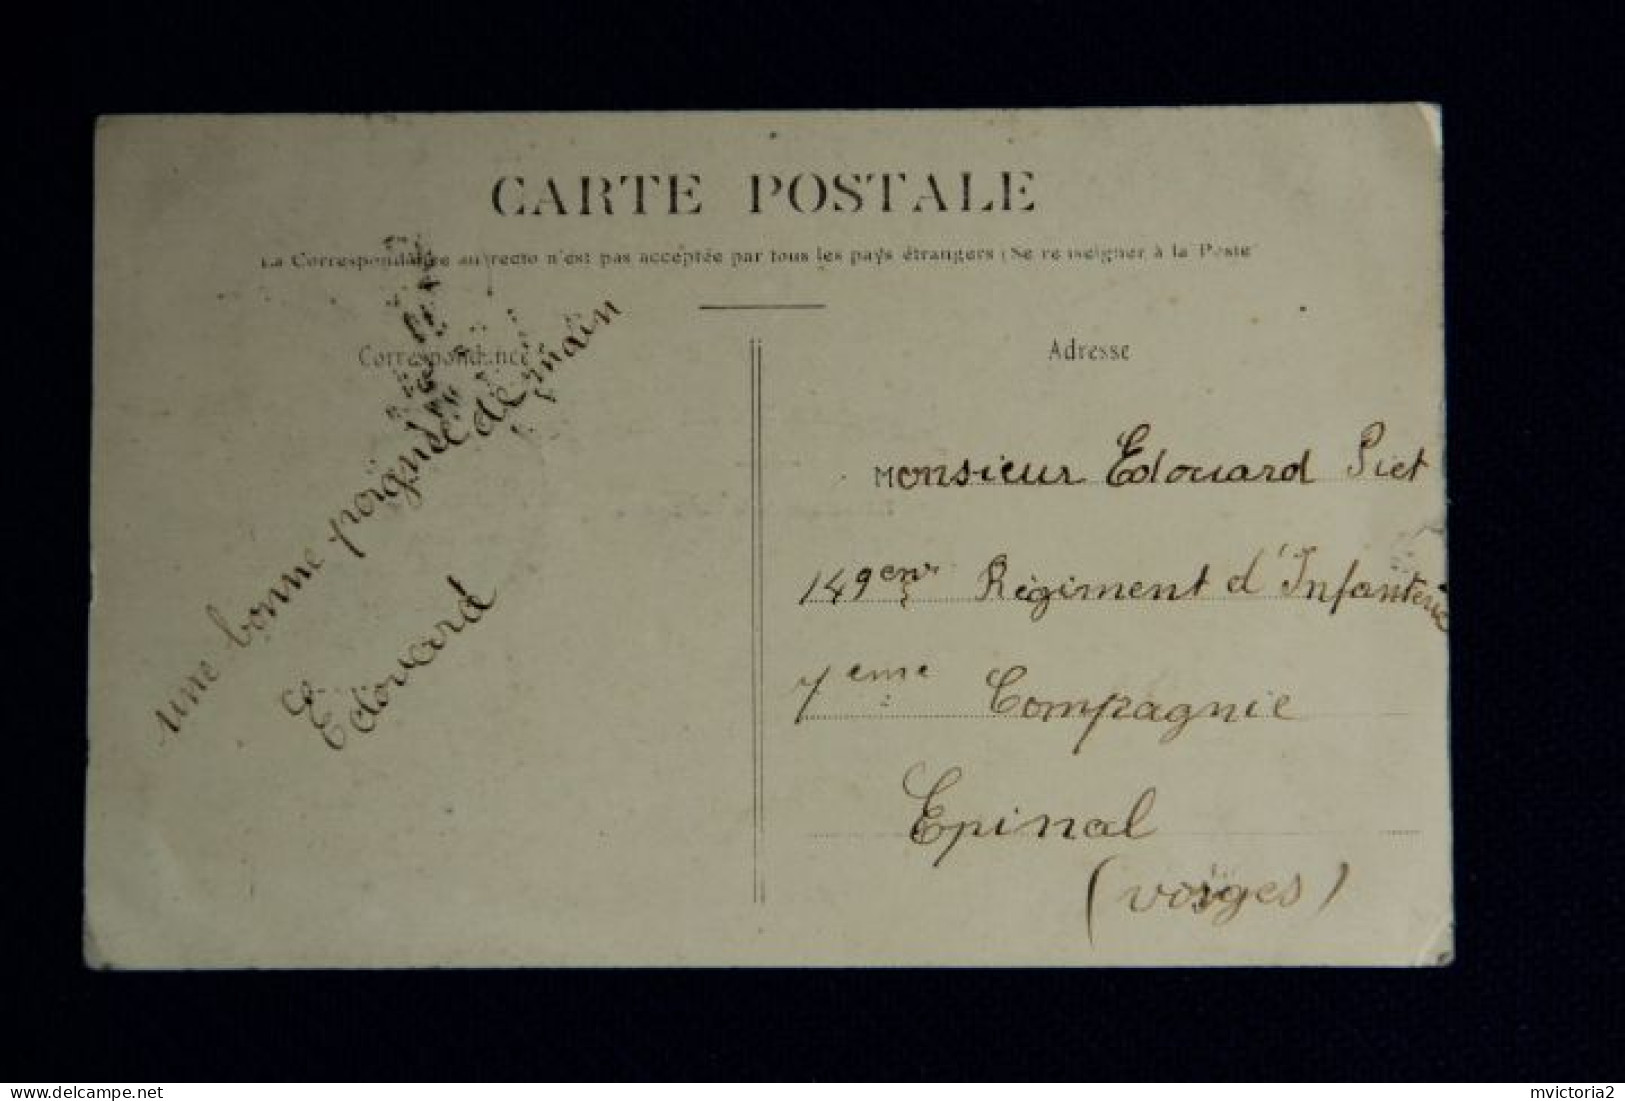 CARTE POSTALE
La Correspondance au recto n'est pas acceptée par tous les pays étrangers (Se renseigner à la Poste
Correspondance
une bonne poignée de main
Edouard
Adresse
Monsieur Edouard Piet
149eme Régiment d'Infanterie
7eme Compagnie
Epinal
(vosges)
delcampe.net
mvictoria2